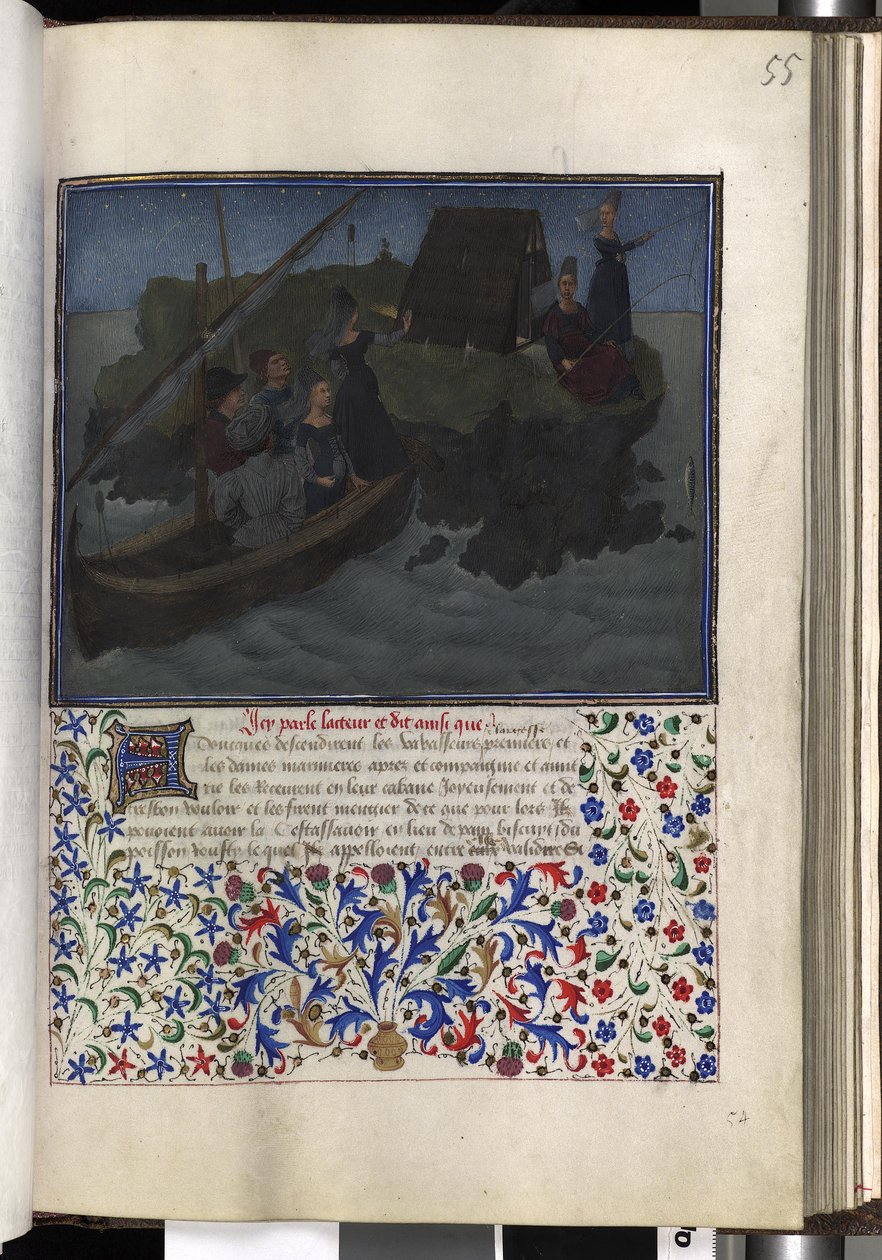 55
Icy parle lacteur et dit ainsi que
largesse
Doncques descendirent les vavasseurs premiere et
les dames marinieres apres et compaignie et amit
rie les Receurent en leur cabane Joyeusement et de
tresbon vouloir et les firent mengier de ce que pour lors
povoient avoir la Cestassavoir en lieu de pain biscuyt du
poisson rousty lequel appelloient entre validire Et
54